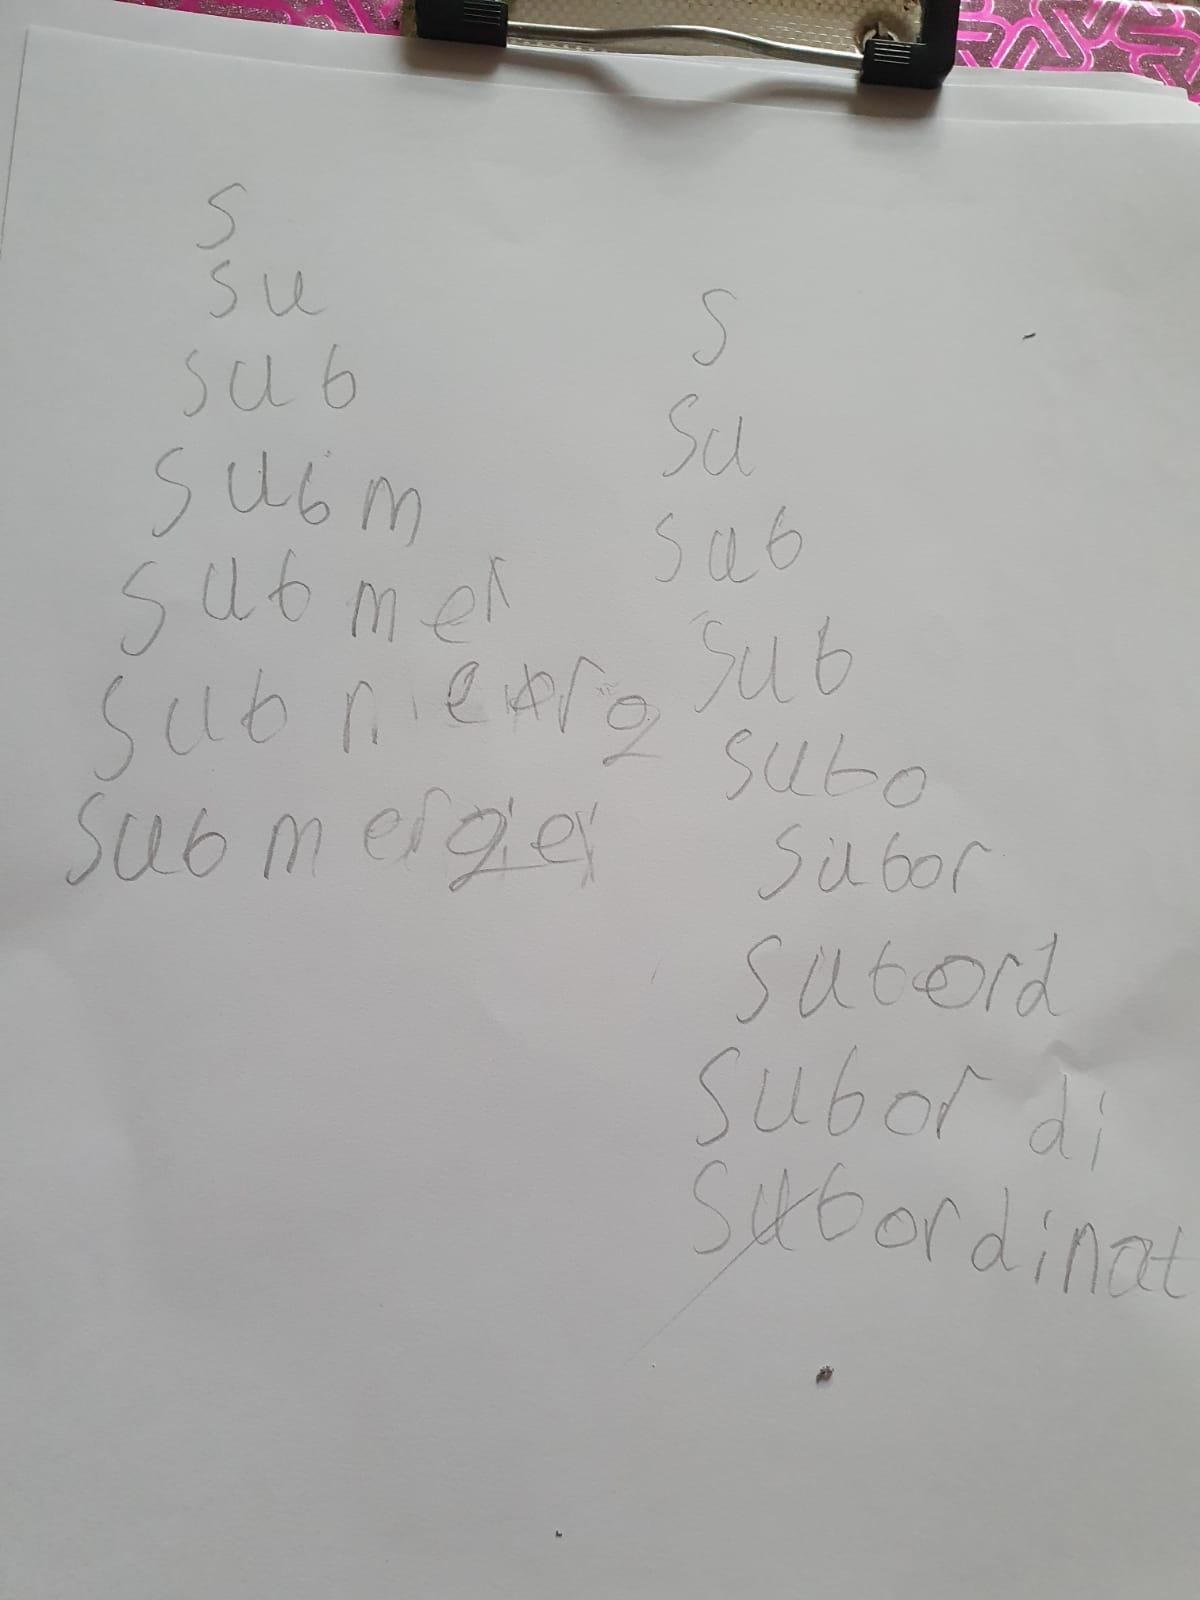 s
su
sub
subm
submer
submerge
s
su
sub
sub
subo
subor
subord
subor di
subordinat